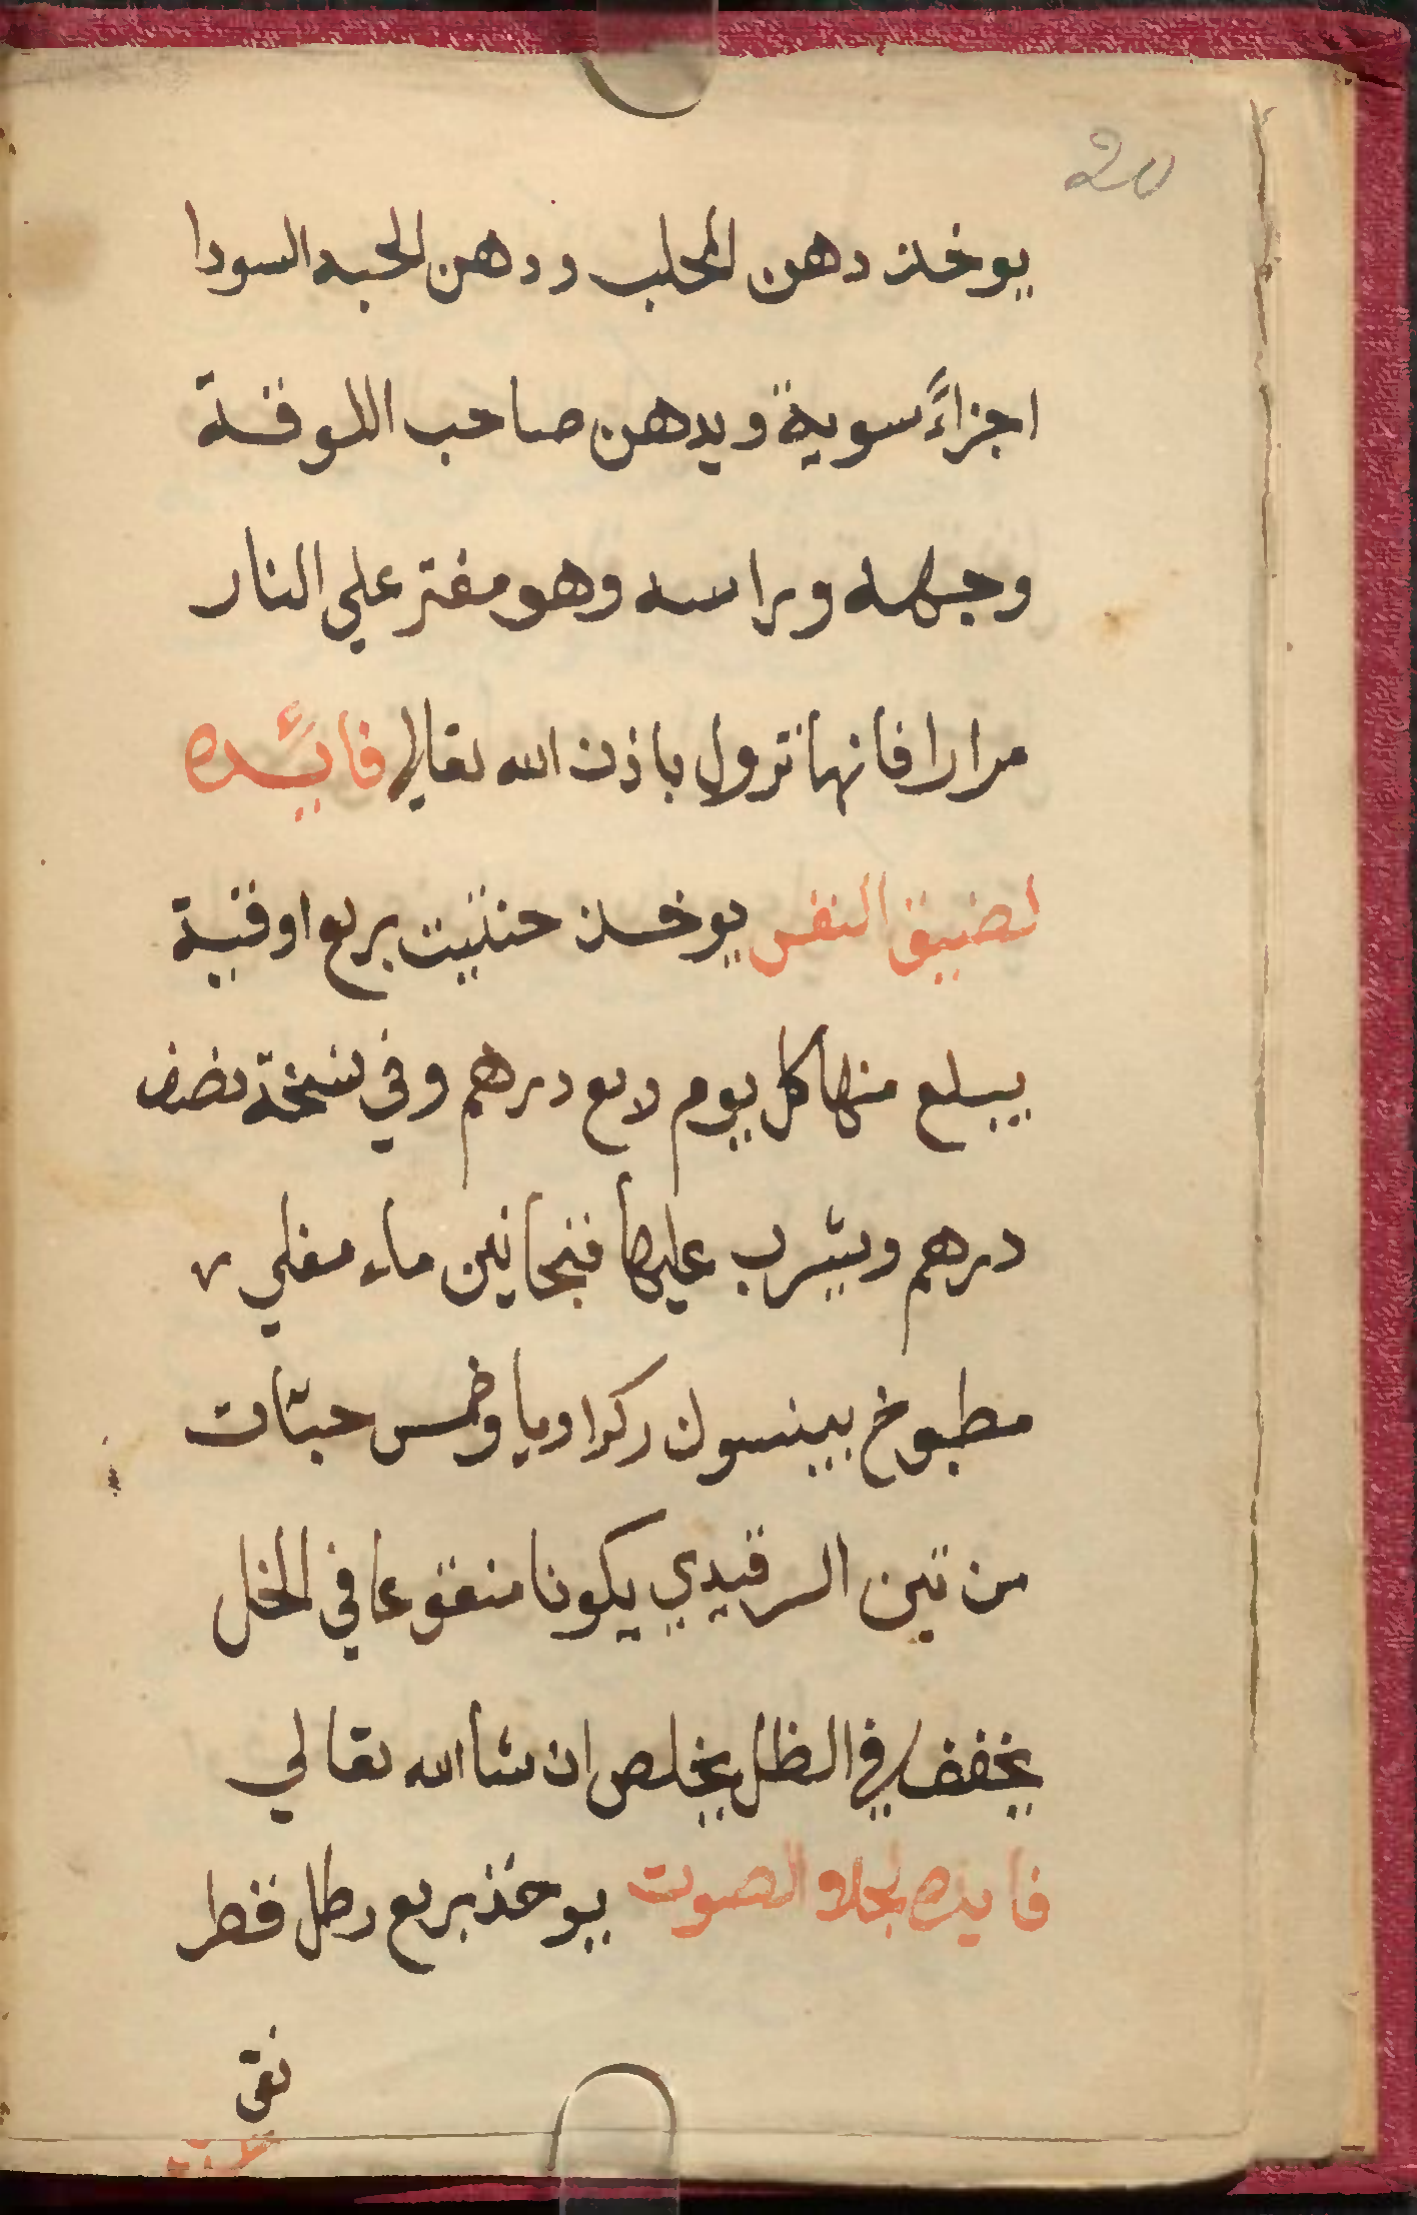 20
يوخذ دهن المحلب ودهن الحبه السودا
اجزاءً سوية ويدهن صاحب اللوقة
وجهه وراسه وهو مفتر علي النار
مرارا فانها تزول باذن الله تعالى فائده
لضيق النفس يوخذ حنتيت بربع اوقية
يبلع منها كل يوم ربع درهم وفي نسخة نصف
درهم ويشرب عليها فنجانين ماء مغلي
مطبوخ بينسون وكراويا وخمس حبات
من تين الرقيدي يكونا منقوعا في الخل
يخفف في الظل يخلص ان شا الله تعالي
فايده لجلاو الصوت يوخذ بربع رطل قطر
نقى